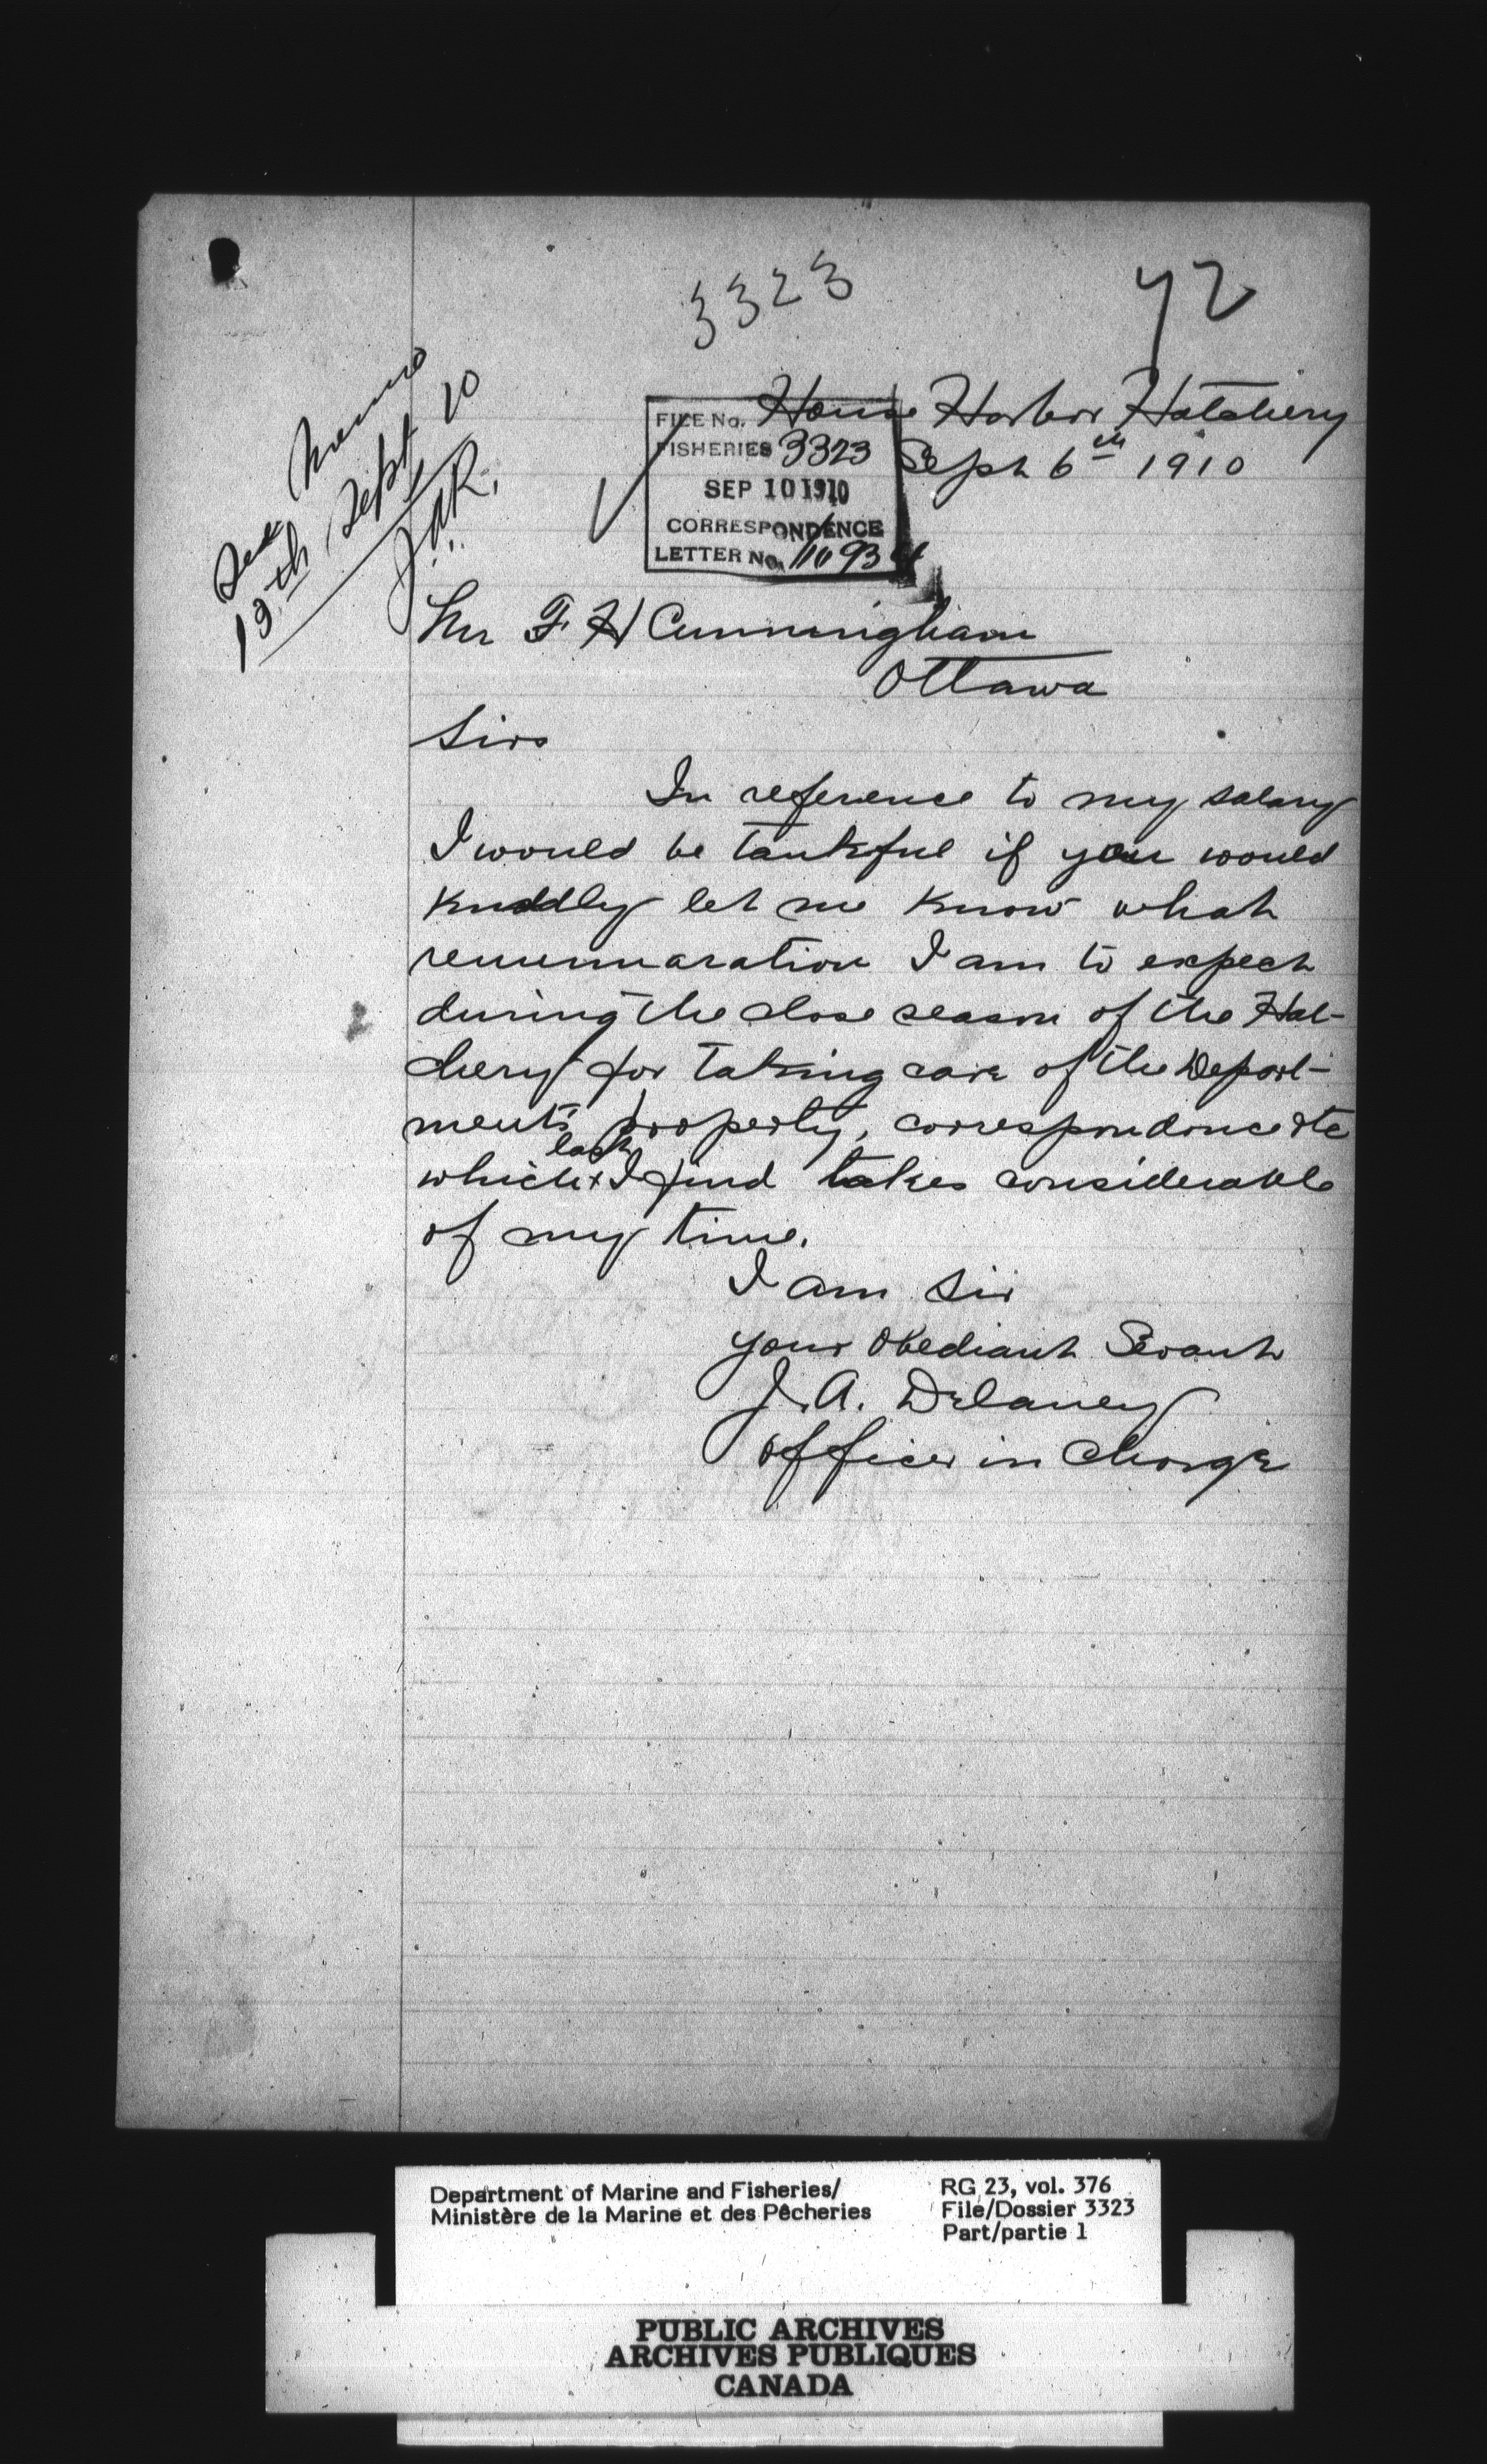 3323
72
See Memo
13th Sept 10
J.A.R.
House Harbor Hatchery
Sept 6th 1910
FILE No.
FISHERIES 3323
SEP 10 1910
CORRESPONDENCE
LETTER No.
Mr F H Cunningham
Ottawa
Sir
In reference to my salary
I would be tankful if you would
kindly let me know what
remunaration I am to expect
during the close season of the Hat-
chery for taking care of the Depart-
ments property, correspondince etc
last
which x I find takes considerable
of my time.
I am Sir
your Obediant Servant
J. A. Delaney
Officer in Charge
Department of Marine and Fisheries/
Ministère de la Marine et des Pêcheries
RG 23, vol. 376
File/Dossier 3323
Part/partie 1
PUBLIC ARCHIVES
ARCHIVES PUBLIQUES
CANADA